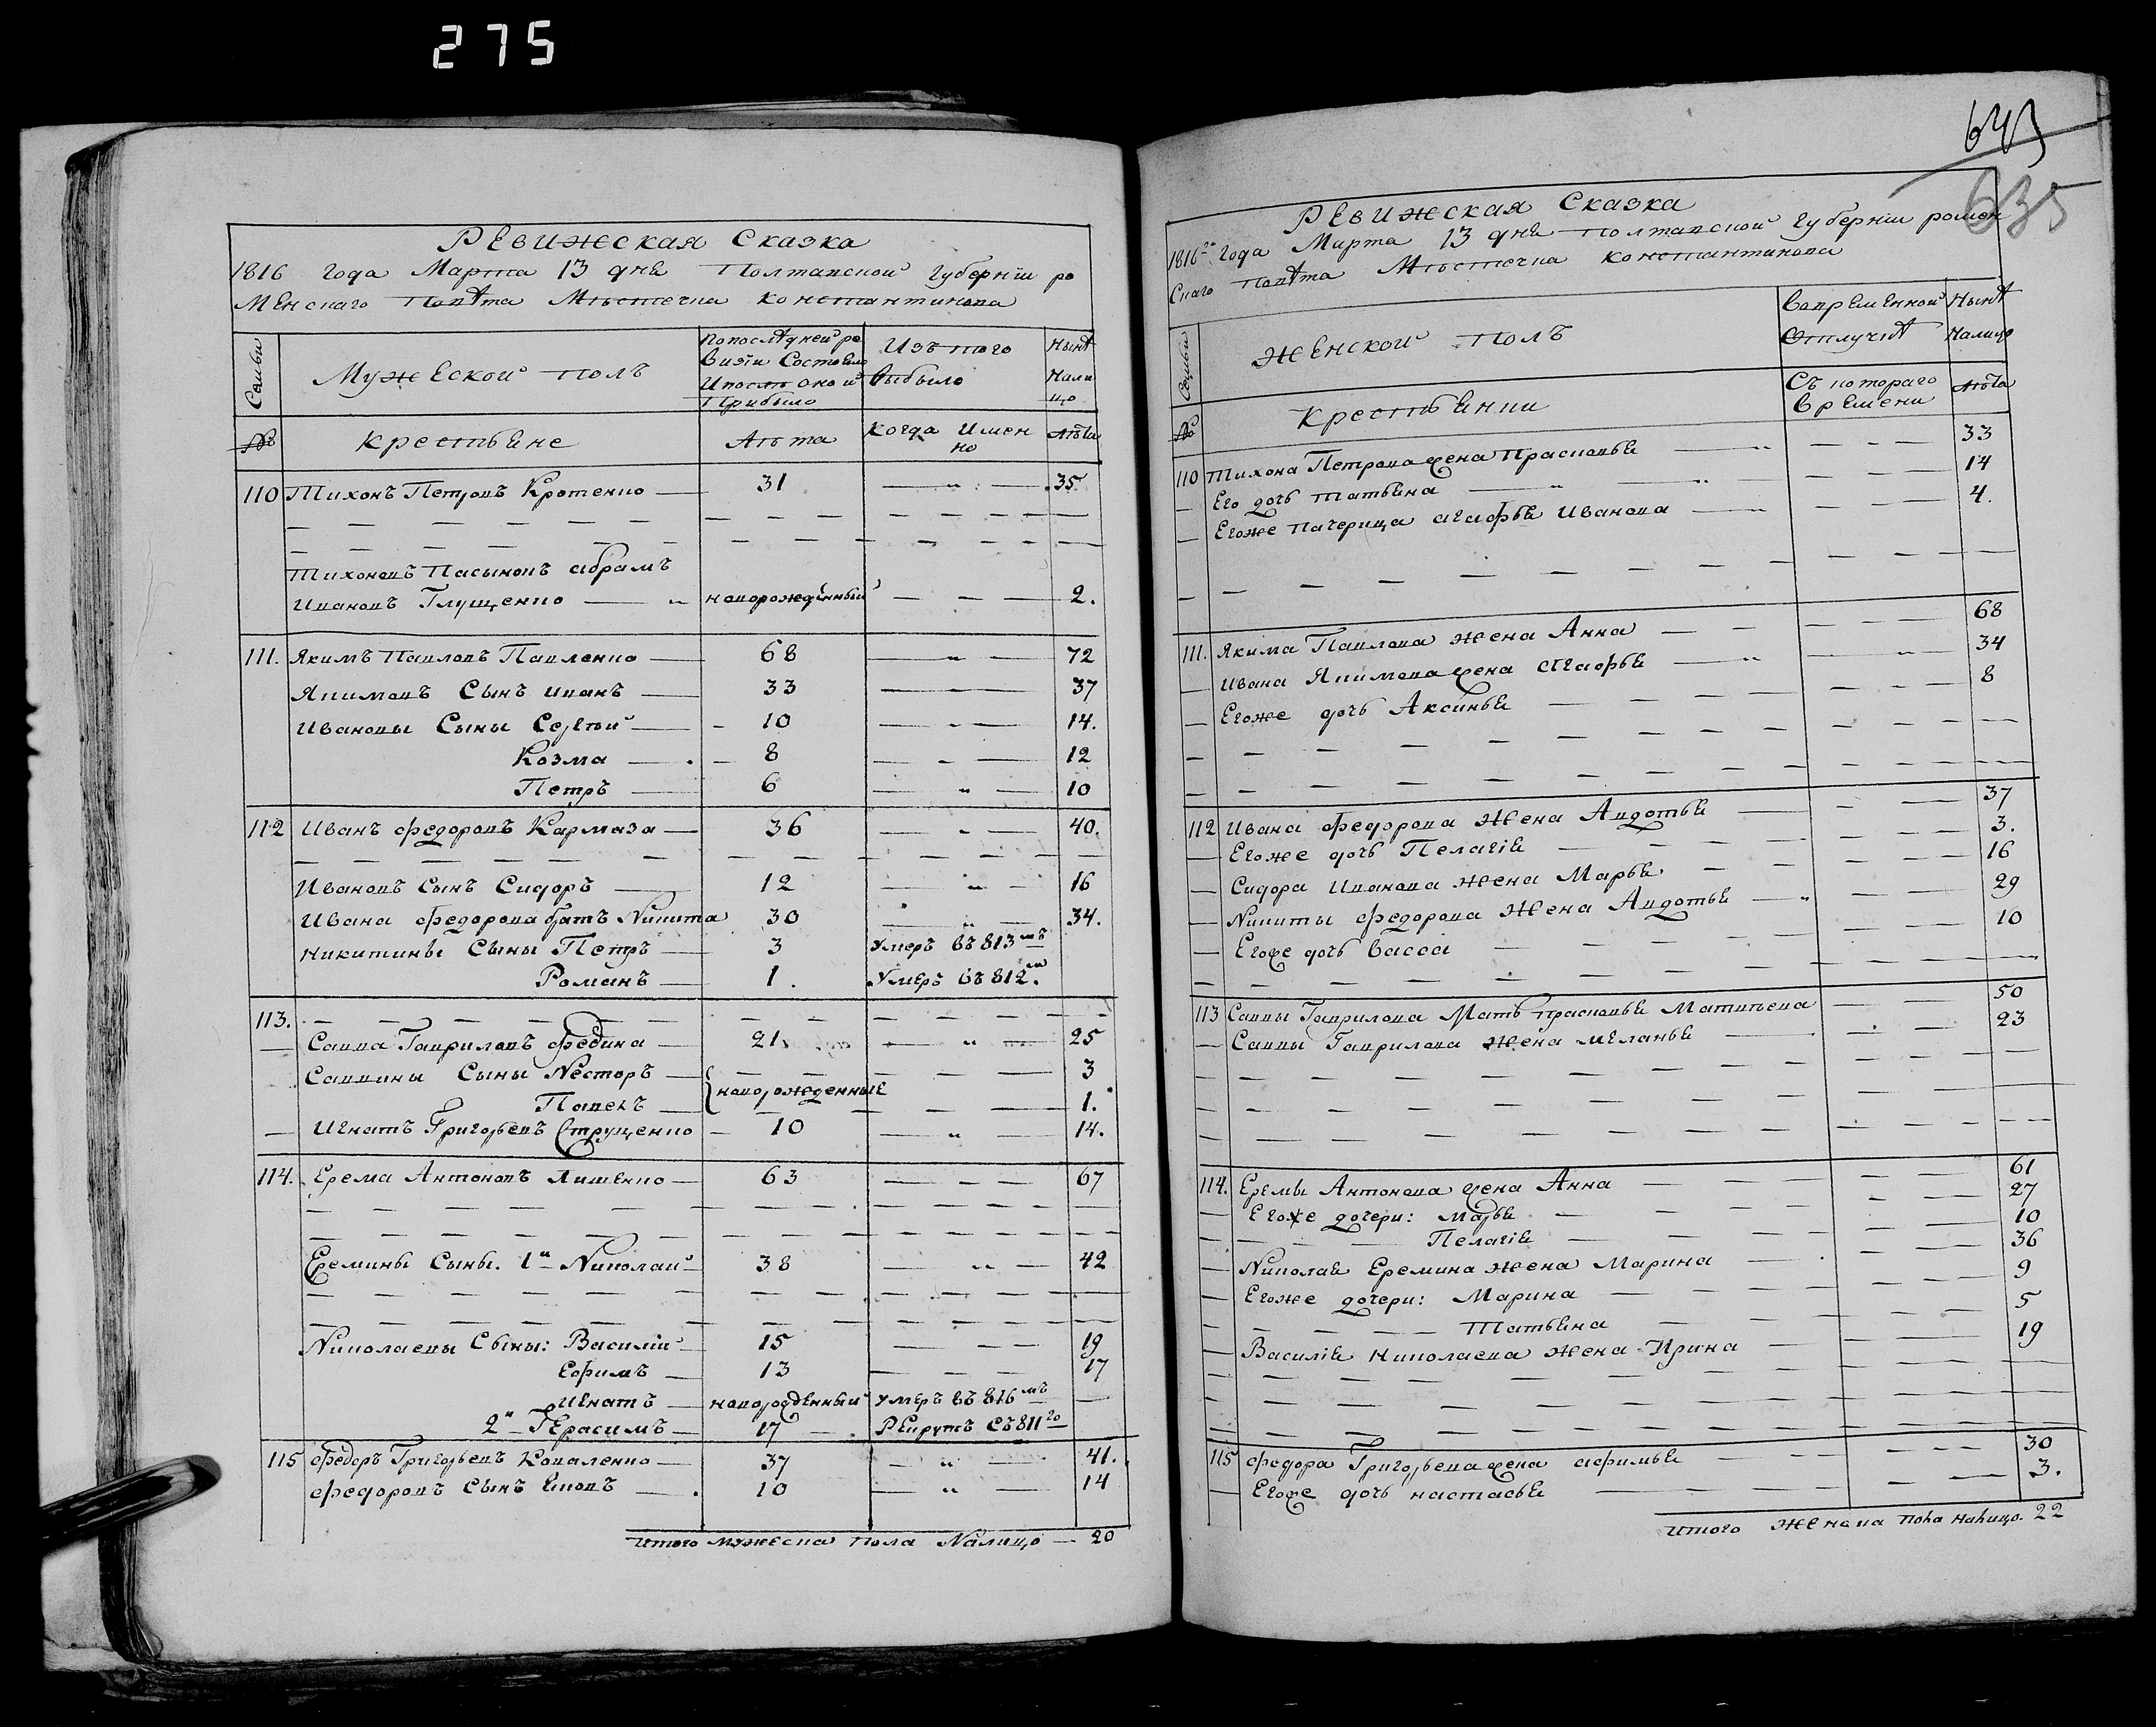 275
РЕВИЖСКАЯ Сказка
1816 года Марта 13 дня Полтавской губернїи ро
менскаго Повѣта Мѣстечка Константинова
Семьи
Мужеской полъ
По послѣдней ре
визїи Состояло
И послѣ оной
Прибыло
Изъ того
выбыло
Нынѣ
Нали
цо
№
Крестьяне
Лѣта
Когда Имен
но
Лѣта
110 Тихонъ Петровъ Кротенко 31 35
Тихоновъ Пасынокъ Абрамъ
Ивановъ Глущенко новорожденный 2.
111. Якимъ Павловъ Павленко 68 72
Якимовъ Сынъ Иванъ 33 37
Ивановы Сыны Сергѣй 10 14.
Козма 8 12
Петръ 6 10
112 Иванъ Федоровъ Кармаза 36 40.
Ивановъ Сынъ Сидоръ 12 16
Ивана Федорова братъ Никита 30 34.
Никитины Сыны Петръ 3 Умеръ въ 813мъ
Романъ 1. Умеръ въ 812м.
113.
Савва Гавриловъ Федина 21 25
Саввины Сыны Несторъ 3
новорожденные
Павелъ 1.
Игнатъ Григорьевъ Струщенко 10 14.
114. Ерема Антоновъ Ляшенко 63 67
Еремины Сыны. 1й Николай 38 42
Николаевы Сыны: Василїй 15 19
Ефимъ 13 17
Игнатъ новорожденный умеръ въ 816мъ
2й Герасимъ 17 Рекрутъ съ 811го
115 Федоръ Григорьевъ Коваленко 37 41.
Федоровъ Сынъ Яковъ 10 14
Итого мужеска пола Налицо 20
643
635
РЕВИЖСКАЯ Сказка
1816го Года Марта 13 дня Полтавской Губернїи ромен
скаго Повѣта Мѣстечка Константинова
Семьи
Женской полъ
Во временной
Отлучкѣ
Нынѣ
Налицо
№
Крестьянки
Съ котораго
времени
Лѣта
110 Тихона Петрова жена Прасковья 33
Его дочь Татьяна 14
Егоже Пачерица Агафья Иванова 4.
111. Якима Павлова жена Анна 68
Ивана Якимова жена Агафья 34
Егоже дочь Аксинья 8
112 Ивана Федорова Жена Авдотья 37
Егоже дочь Пелагїя 3.
Сидора Иванова жена Марья 16
Никиты Федорова Жена Авдотья 29
Егоже дочь Васса 10
113 Саввы Гаврилова Мать Прасковья Матвѣева 50
Саввы Гаврилова Жена Меланья 23
114. Еремы Антонова жена Анна 61
Егоже дочери: Марья 27
Пелагїя 10
Николая Еремина жена Марина 36
Егоже дочери: Марина 9
Татьяна 5
Василїя Николаева жена Ирина 19
115 Федора Григорьева жена Афимья 30
Егоже дочь настасья 3.
Итого Женска Пола Налицо. 22